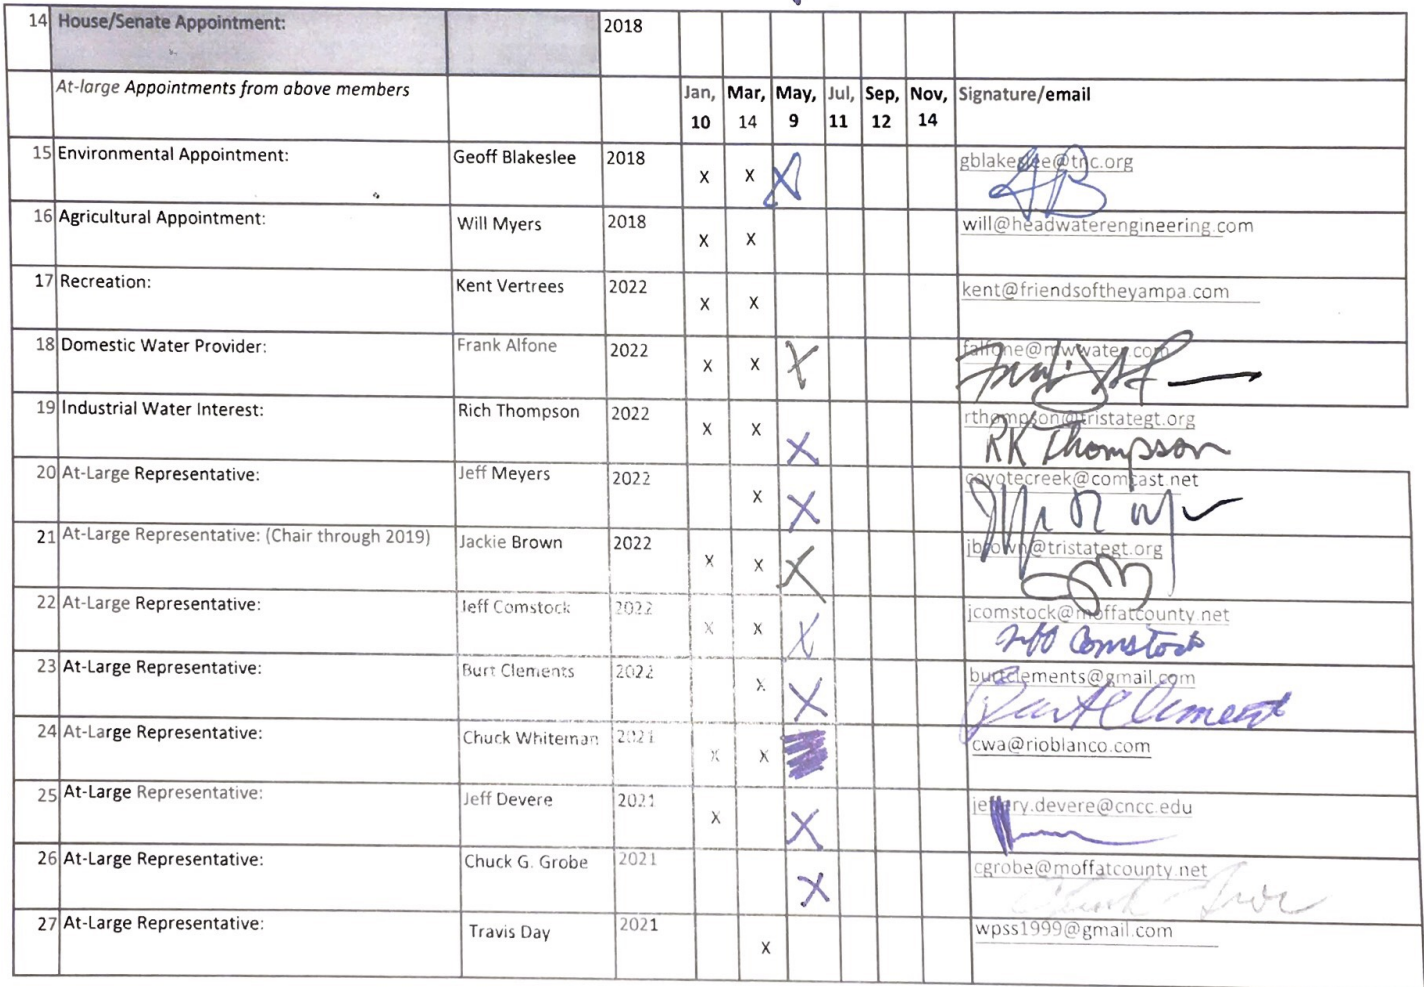 14 House/Senate Appointment: 2018
At-large Appointments from above members Jan, 10 Mar, 14 May, 9 Jul, 11 Sep, 12 Nov, 14 Signature/email
15 Environmental Appointment: Geoff Blakeslee 2018 X X X gblakeslee@tnc.org GB
16 Agricultural Appointment: Will Myers 2018 X X will@headwaterengineering.com
17 Recreation: Kent Vertrees 2022 X X kent@friendsoftheyampa.com
18 Domestic Water Provider: Frank Alfone 2022 X X X falfone@mwwater.com
19 Industrial Water Interest: Rich Thompson 2022 X X X rthompson@tristategt.org RK Thompson
20 At-Large Representative: Jeff Meyers 2022 X X coyotecreek@comcast.net
21 At-Large Representative: (Chair through 2019) Jackie Brown 2022 X X X jbrown@tristategt.org
22 At-Large Representative: Jeff Comstock 2022 X X X jcomstock@moffatcounty.net Jeff Comstock
23 At-Large Representative: Burt Clements 2022 X X burtclements@gmail.com Burt Clements
24 At-Large Representative: Chuck Whiteman 2021 X X cwa@rioblanco.com
25 At-Large Representative: Jeff Devere 2021 X X jeffery.devere@cncc.edu
26 At-Large Representative: Chuck G. Grobe 2021 X cgrobe@moffatcounty.net
27 At-Large Representative: Travis Day 2021 X wpss1999@gmail.com